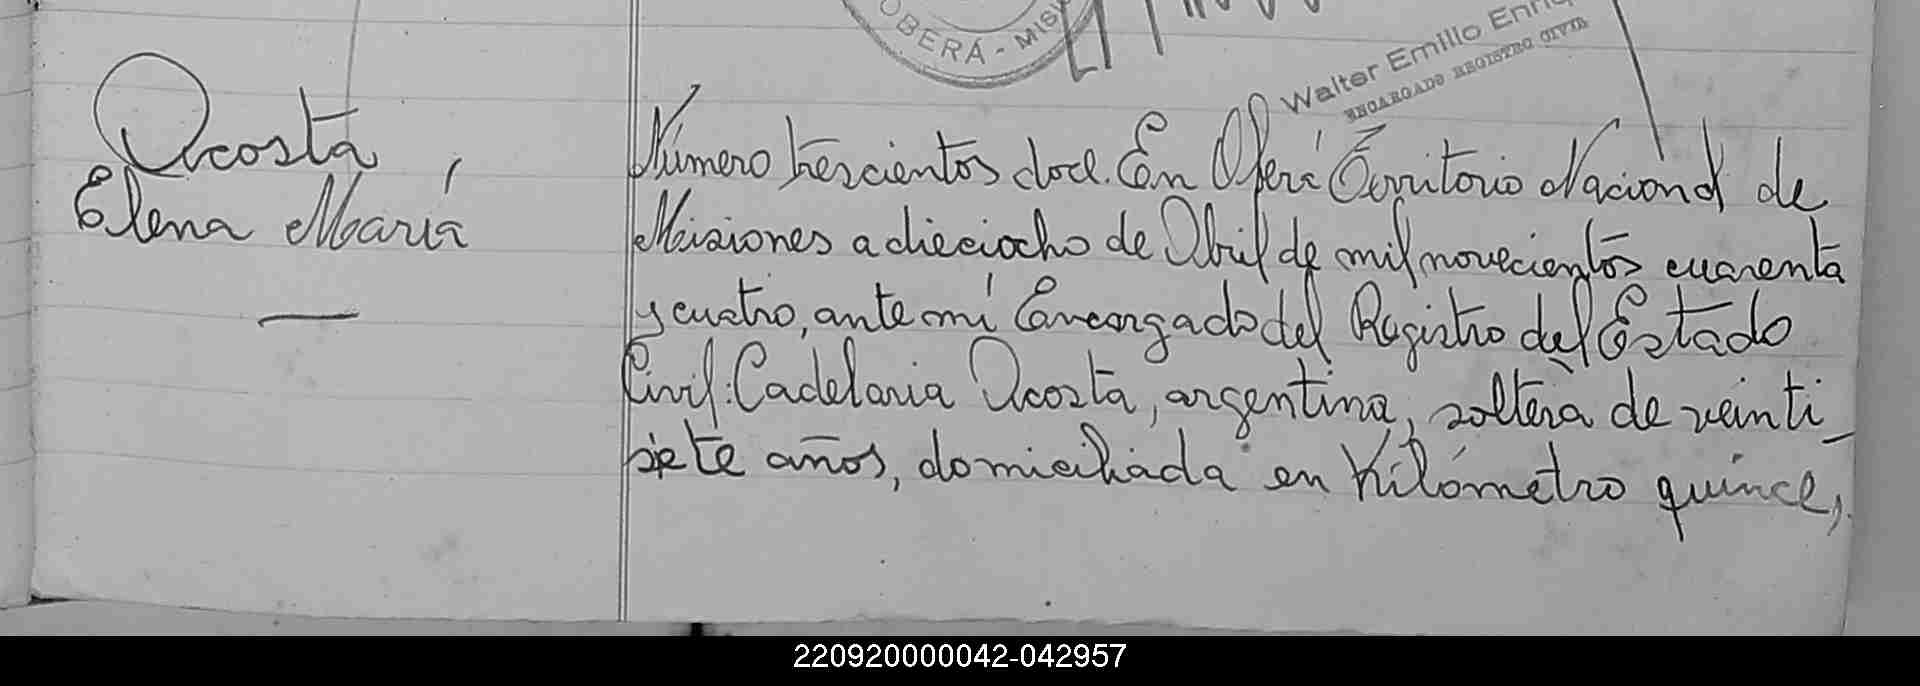 OBERÁ - MIS
Walter Emilio Enriq
ENCARGADO REGISTRO CIVIL
Acosta,
Elena María
Número trescientos doce. En Oberá Territorio Nacional de
Misiones a dieciocho de Abril de mil novecientos cuarenta
y cuatro, ante mí Encargado del Registro del Estado
Civil: Cadelaria Acosta, argentina, soltera de veinti_
siete años, domiciliada en Kilómetro quince,
220920000042-042957